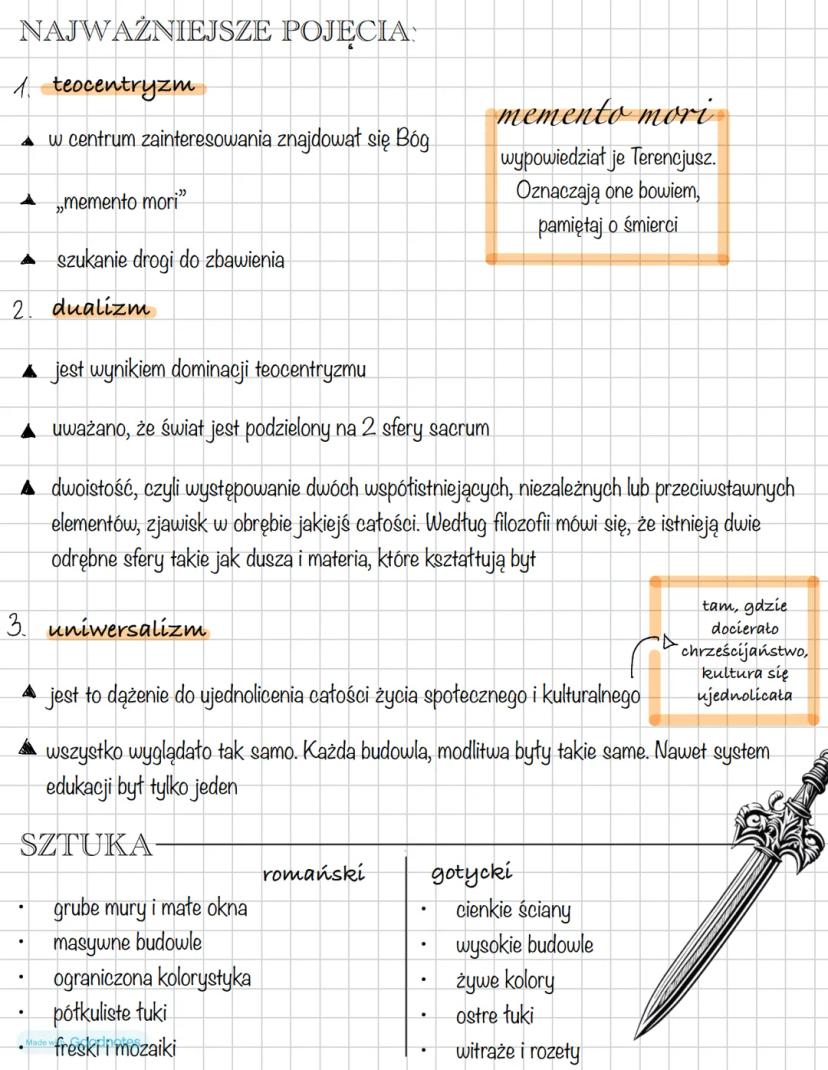 NAJWAŻNIEJSZE POJĘCIA:
1. teocentryzm
w centrum zainteresowania znajdował się Bóg
„memento mori”
szukanie drogi do zbawienia
memento mori
wypowiedział je Terencjusz.
Oznaczają one bowiem,
pamiętaj o śmierci
2. dualizm
jest wynikiem dominacji teocentryzmu
uważano, że świat jest podzielony na 2 sfery sacrum
dwoistość, czyli występowanie dwóch współistniejących, niezależnych lub przeciwstawnych
elementów, zjawisk w obrębie jakiejś całości. Według filozofii mówi się, że istnieją dwie
odrębne sfery takie jak dusza i materia, które kształtują byt
3. uniwersalizm
tam, gdzie
docierało
chrześcijaństwo,
kultura się
ujednolicała
jest to dążenie do ujednolicenia całości życia społecznego i kulturalnego
wszystko wyglądało tak samo. Każda budowla, modlitwa były takie same. Nawet system
edukacji był tylko jeden
SZTUKA
romański
• grube mury i małe okna
• masywne budowle
• ograniczona kolorystyka
• półkuliste łuki
• freski i mozaiki
gotycki
• cienkie ściany
• wysokie budowle
• żywe kolory
• ostre łuki
• witraże i rozety
Made with Goodnotes